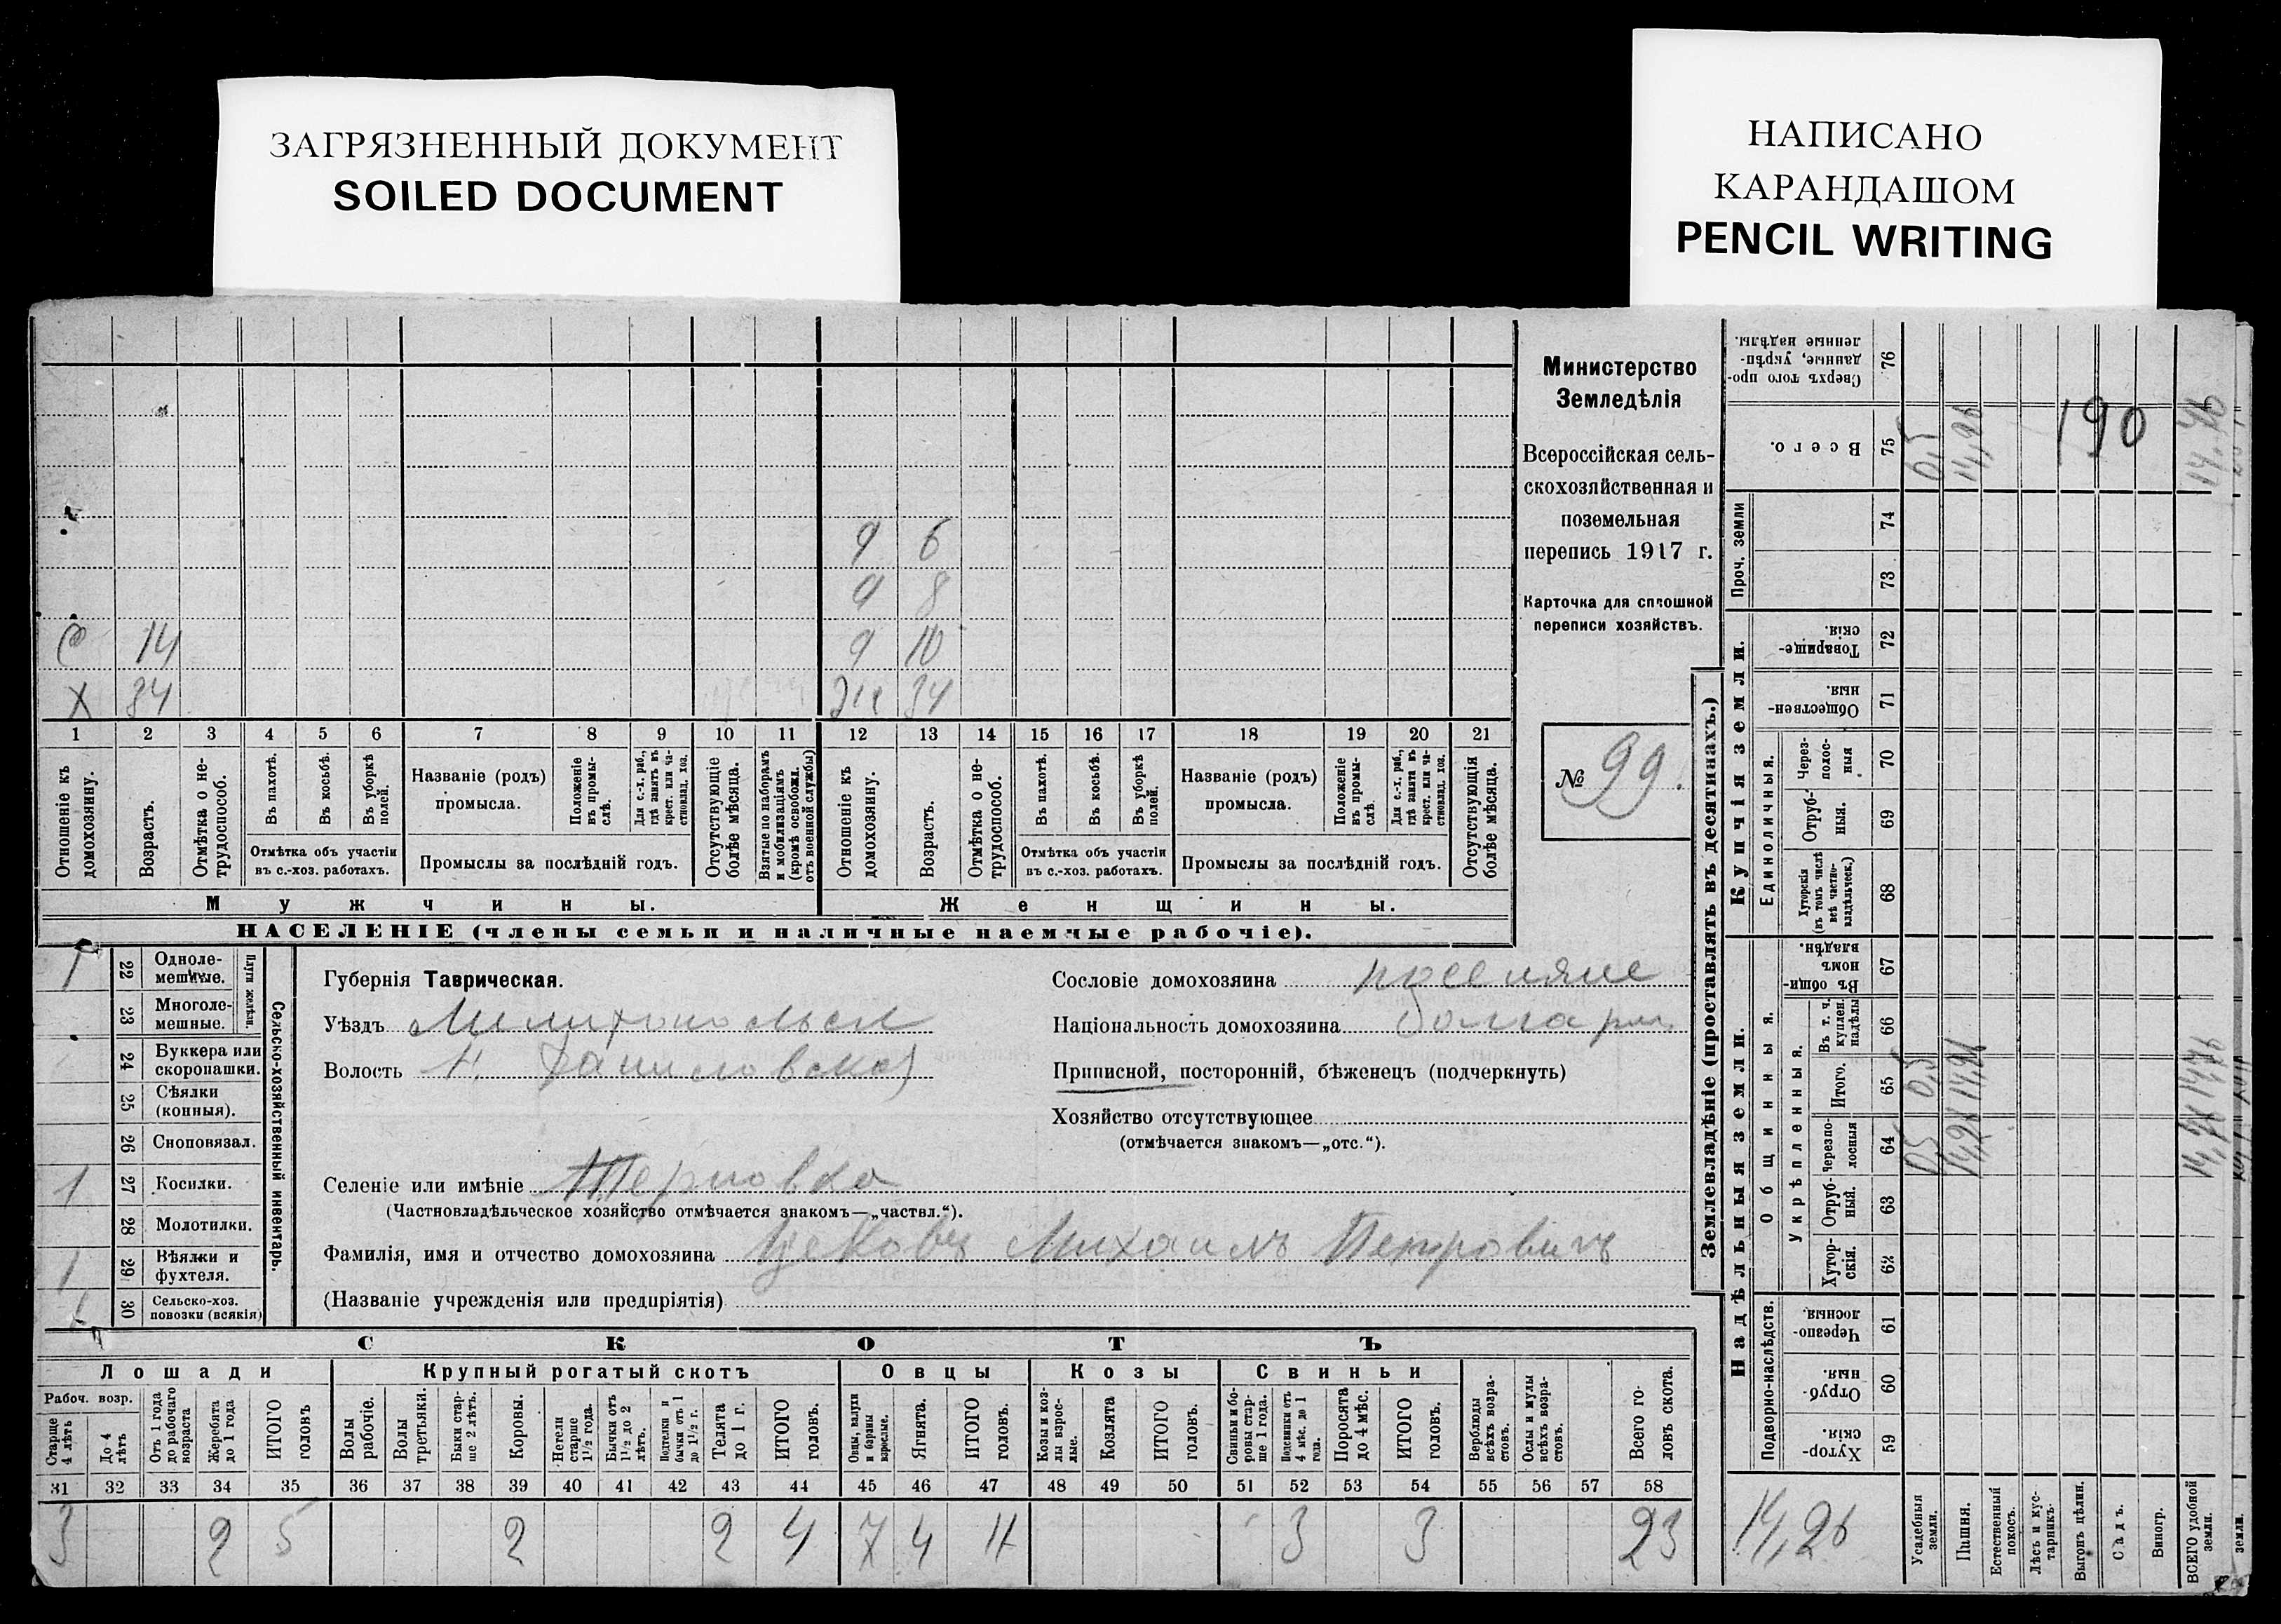 ЗАГРЯЗНЕННЫЙ ДОКУМЕНТ
SOILED DOCUMENT
НАПИСАНО
КАРАНДАШОМ
PENCIL WRITING
Министерство
Земледѣлія
Всероссійская сель-
скохозяйственная и
поземельная
перепись 1917 г.
Карточка для сплошной
переписи хозяйствъ.
№ 99.
9 6
9 8
14 9 10
X 34 34
1 2 3 4 5 6 7 8 9 10 11 12 13 14 15 16 17 18 19 20 21
Отношеніе къ домохозяину.
Возрастъ.
Отмѣтка о не-трудоспособ.
Въ пахотѣ.
Въ косьбѣ.
Въ уборкѣ полей.
Отмѣтка объ участіи
въ с.-хоз. работахъ.
Названіе (родъ)
промысла.
Положеніе въ промы-слѣ.
Для с.-х. раб., гдѣ занятъ въ крест. или ча-стновлад. хоз.
Промыслы за послѣдній годъ.
Отсутствующіе болѣе мѣсяца.
Взятые по наборамъ и мобилизаціямъ (кромѣ освобожд. отъ военной службы)
Отношеніе къ домохозяину.
Возрастъ.
Отмѣтка о не-трудоспособ.
Въ пахотѣ.
Въ косьбѣ.
Въ уборкѣ полей.
Отмѣтка объ участіи
въ с.-хоз. работахъ.
Названіе (родъ)
промысла.
Положеніе въ промы-слѣ.
Для с.-х. раб., гдѣ занята въ крест. или ча-стновлад. хоз.
Промыслы за послѣдній годъ.
Отсутствующія болѣе мѣсяца.
Мужчины. Женщины.
НАСЕЛЕНІЕ (члены семьи и наличные наемные рабочіе).
Сельско-хозяйственный инвентарь.
Плуги желѣзн.
1 22 Одноле-мешные.
23 Многоле-мешные.
24 Буккера или скоропашки.
25 Сѣялки (конныя).
26 Сноповязал.
1 27 Косилки.
28 Молотилки.
1 29 Вѣялки и фухтеля.
30 Сельско-хоз. повозки (всякія)
Губернія Таврическая.
Уѣздъ Мелитопольск
Волость
Селеніе или имѣніе Терновка
(Частновладѣльческое хозяйство отмѣчается знакомъ—„частвл.“).
Фамилія, имя и отчество домохозяина Михаилъ Петровичъ
(Названіе учрежденія или предпріятія)
Сословіе домохозяина поселяне
Національность домохозяина болгары
Приписной, посторонній, бѣженецъ (подчеркнуть)
Хозяйство отсутствующее
(отмѣчается знакомъ—„отс.“).
СКОТЪ
Лошади Крупный рогатый скотъ Овцы Козы Свиньи
Рабоч. возр.
Старще 4 лѣтъ
До 4 лѣтъ
Отъ 1 года до рабочаго возраста
Жеребята до 1 года
ИТОГО головъ
Волы рабочіе.
Волы третьяки.
Быки стар-ше 2 лѣтъ.
Коровы.
Нетели старше 1½ года.
Бычки отъ 1½ до 2 лѣтъ.
Подтелки и бычки отъ 1 до 1½ г.
Телята до 1 г.
ИТОГО головъ.
Овцы, валухи и бараны взрослые.
Ягнята.
ИТОГО головъ.
Козы и коз-лы взрос-лые.
Козлята
ИТОГО головъ.
Свиньи и бо-ровы стар-ше 1 года.
Подсвинки отъ 4 мѣс. до 1 года.
Поросята до 4 мѣс.
ИТОГО головъ.
Верблюды всѣхъ возра-стовъ.
Ослы и мулы всѣхъ возра-стовъ.
Всего го-ловъ скота.
31 32 33 34 35 36 37 38 39 40 41 42 43 44 45 46 47 48 49 50 51 52 53 54 55 56 57 58
3 2 5 2 2 4 7 4 11 3 3 23
Землевладѣніе (проставлять въ десятинахъ.)
Надѣльныя земли. Купчія земли. Проч. земли
Подворно-наслѣдств.
Общинныя.
Укрѣпленныя.
Единоличныя.
Хутор-скія. 59
Отруб-ныя. 60
Черезпо-лосныя. 61
Хутор-скія. 62
Отруб-ный. 63
Черезпо-лосныя 64
Итого. 65
Въ т. ч. куплен. надѣлы 66
Въ общи-номъ владѣн. 67
Хуторскія (въ томъ числѣ всѣ частно-владѣльческ.) 68
Отруб-ныя. 69
Через-полос-ныя 70
Обществен-ныя 71
Товарище-скія. 72
73
74
Всего. 75
Сверхъ того про-данные, укрѣп-ленные надѣлы. 76
190
0,5 0,5 0,5
14,26 14,26 14,26
14,76 14,76
14,26
Усадебныя земли.
Пашня.
Естественный покосъ.
Лѣсъ и кус-тарникъ.
Выгонъ цѣлин.
Садъ.
Виногр.
ВСЕГО удобной земли.
земли.